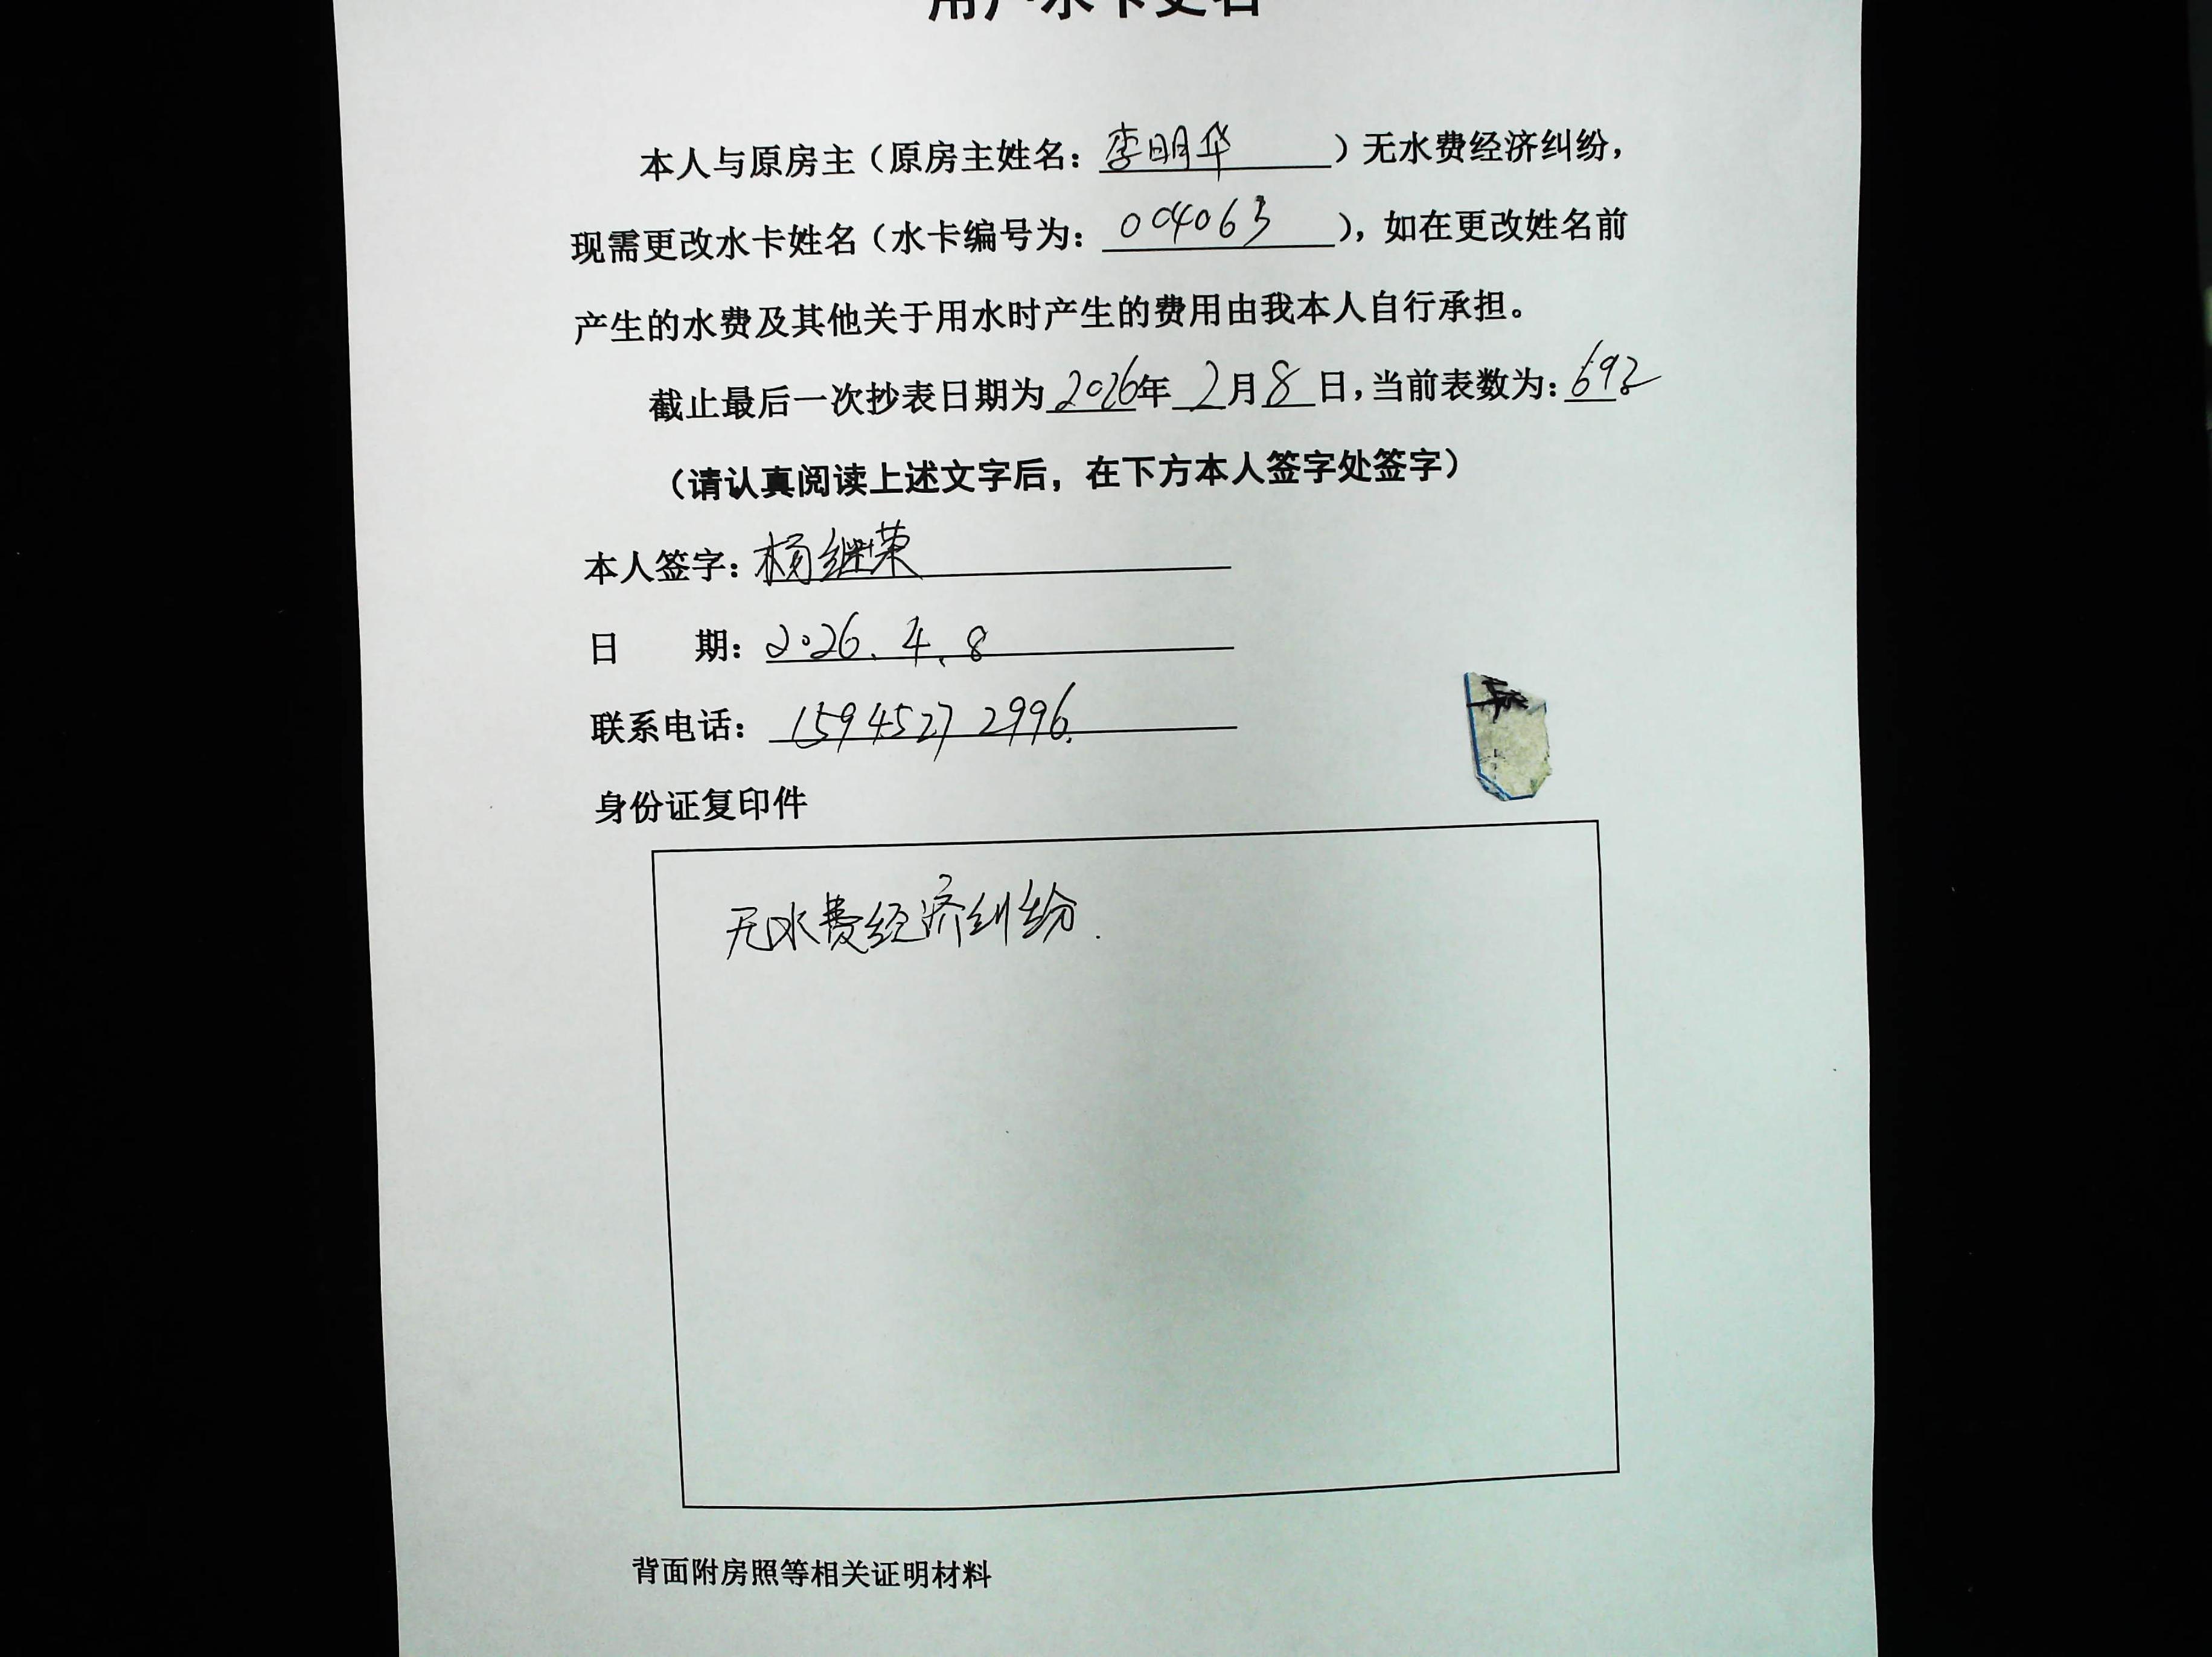 用户水卡更名
本人与原房主（原房主姓名：李明华）无水费经济纠纷，
现需更改水卡姓名（水卡编号为：004063），如在更改姓名前
产生的水费及其他关于用水时产生的费用由我本人自行承担。
截止最后一次抄表日期为2026年2月8日，当前表数为：692
（请认真阅读上述文字后，在下方本人签字处签字）
本人签字：杨继荣
日 期：2026.4.8
联系电话：15945272996.
身份证复印件
无水费经济纠纷.
背面附房照等相关证明材料